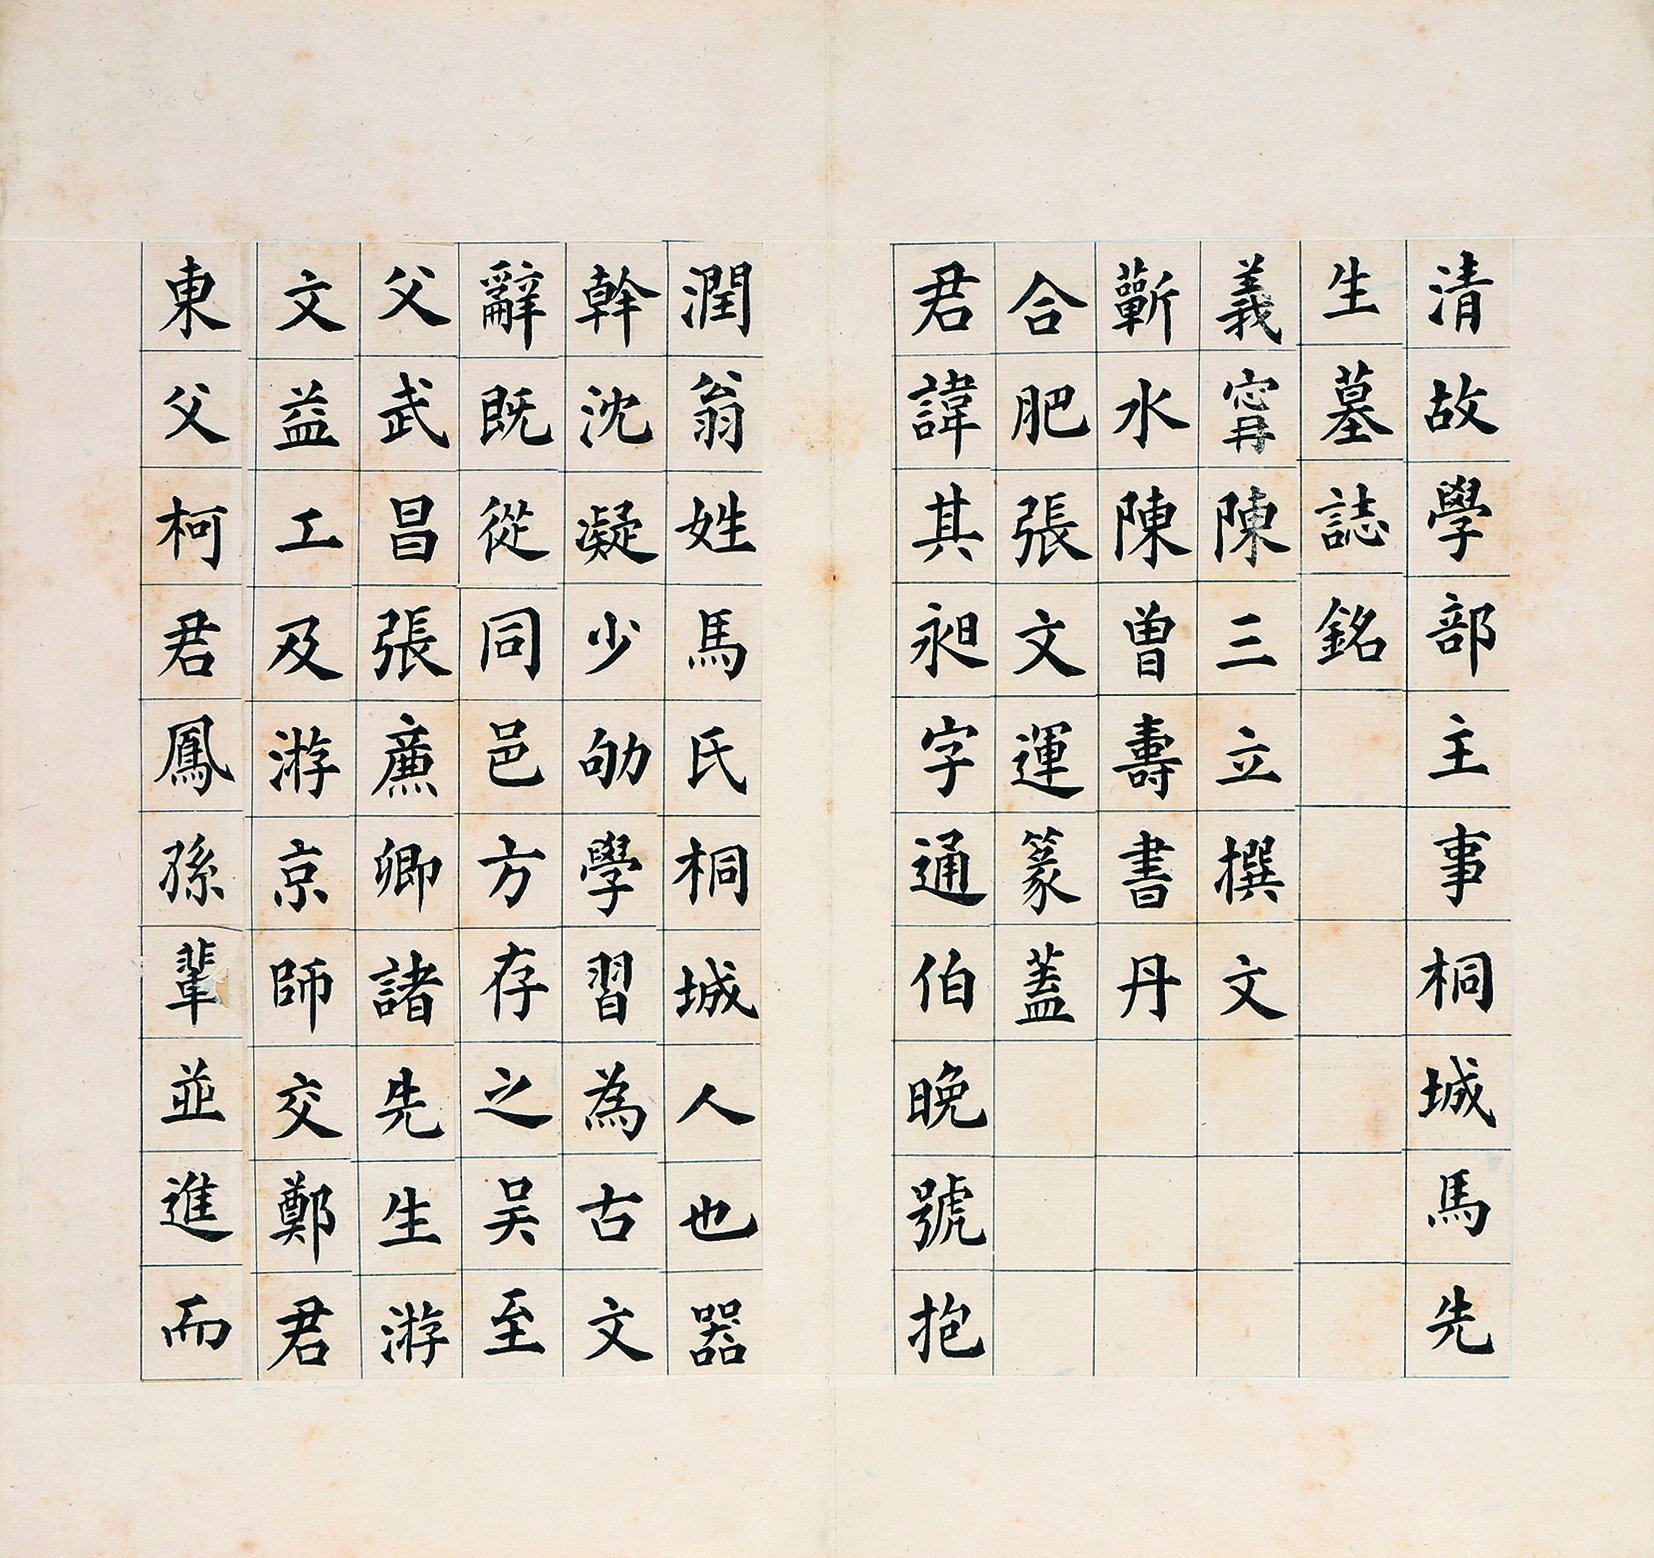 清故學部主事桐城馬先
生墓誌銘
義甯陳三立撰文
蘄水陳曾壽書丹
合肥張文運篆蓋
君諱其昶字通伯晚號抱
潤翁姓馬氏桐城人也器
幹沈凝少劬學習為古文
辭既從同邑方存之吳至
父武昌張廉卿諸先生游
文益工及游京師交鄭君
東父柯君鳳孫輩並進而